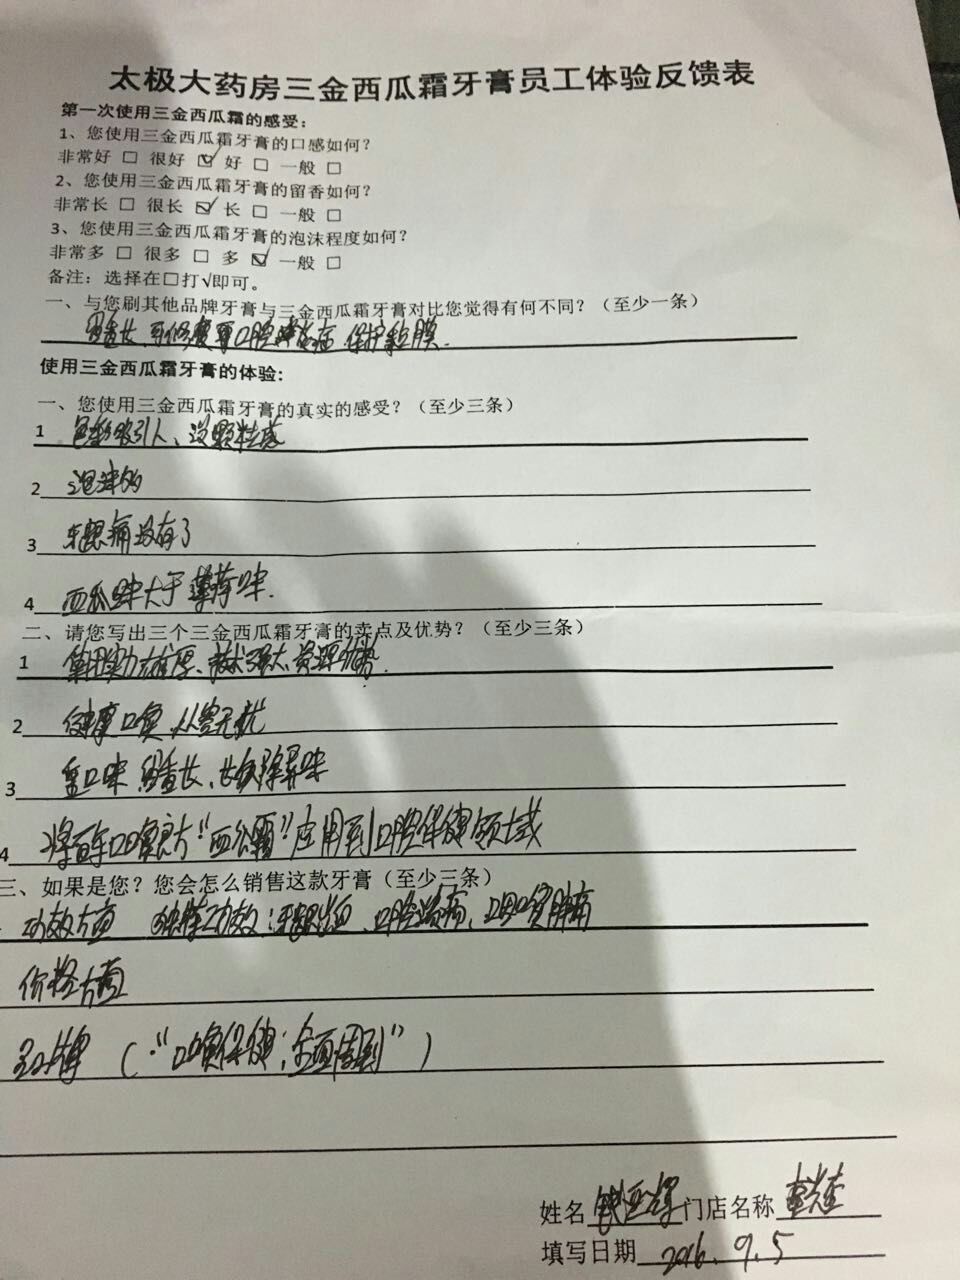 太极大药房三金西瓜霜牙膏员工体验反馈表
第一次使用三金西瓜霜的感受：
1、您使用三金西瓜霜牙膏的口感如何？
非常好 □ 很好 ☑ 好 □ 一般 □
2、您使用三金西瓜霜牙膏的留香如何？
非常长 □ 很长 ☑ 长 □ 一般 □
3、您使用三金西瓜霜牙膏的泡沫程度如何？
非常多 □ 很多 □ 多 ☑ 一般 □
备注：选择在□打√即可。
一、与您刷其他品牌牙膏与三金西瓜霜牙膏对比您觉得有何不同？（至少一条）
留香长、可修复 口腔 保护黏膜.
使用三金西瓜霜牙膏的体验:
一、您使用三金西瓜霜牙膏的真实的感受？（至少三条）
1 色彩吸引人、没颗粒感
2 泡沫的
3 牙龈痛没有了
4 西瓜味大于薄荷味.
二、请您写出三个三金西瓜霜牙膏的卖点及优势？（至少三条）
1 集团实力雄厚、技术强大、资源优势.
2 健康口喉
3 留香长、长效除异味
4 将百年口喉良方“西瓜霜”应用到口腔保健领域
三、如果是您？您会怎么销售这款牙膏（至少三条）
功效方面 独特功效：牙龈出血、口腔溃疡、咽喉肿痛
价格方面
（“口喉保健；全面周到”）
姓名 门店名称
填写日期 2016.9.5